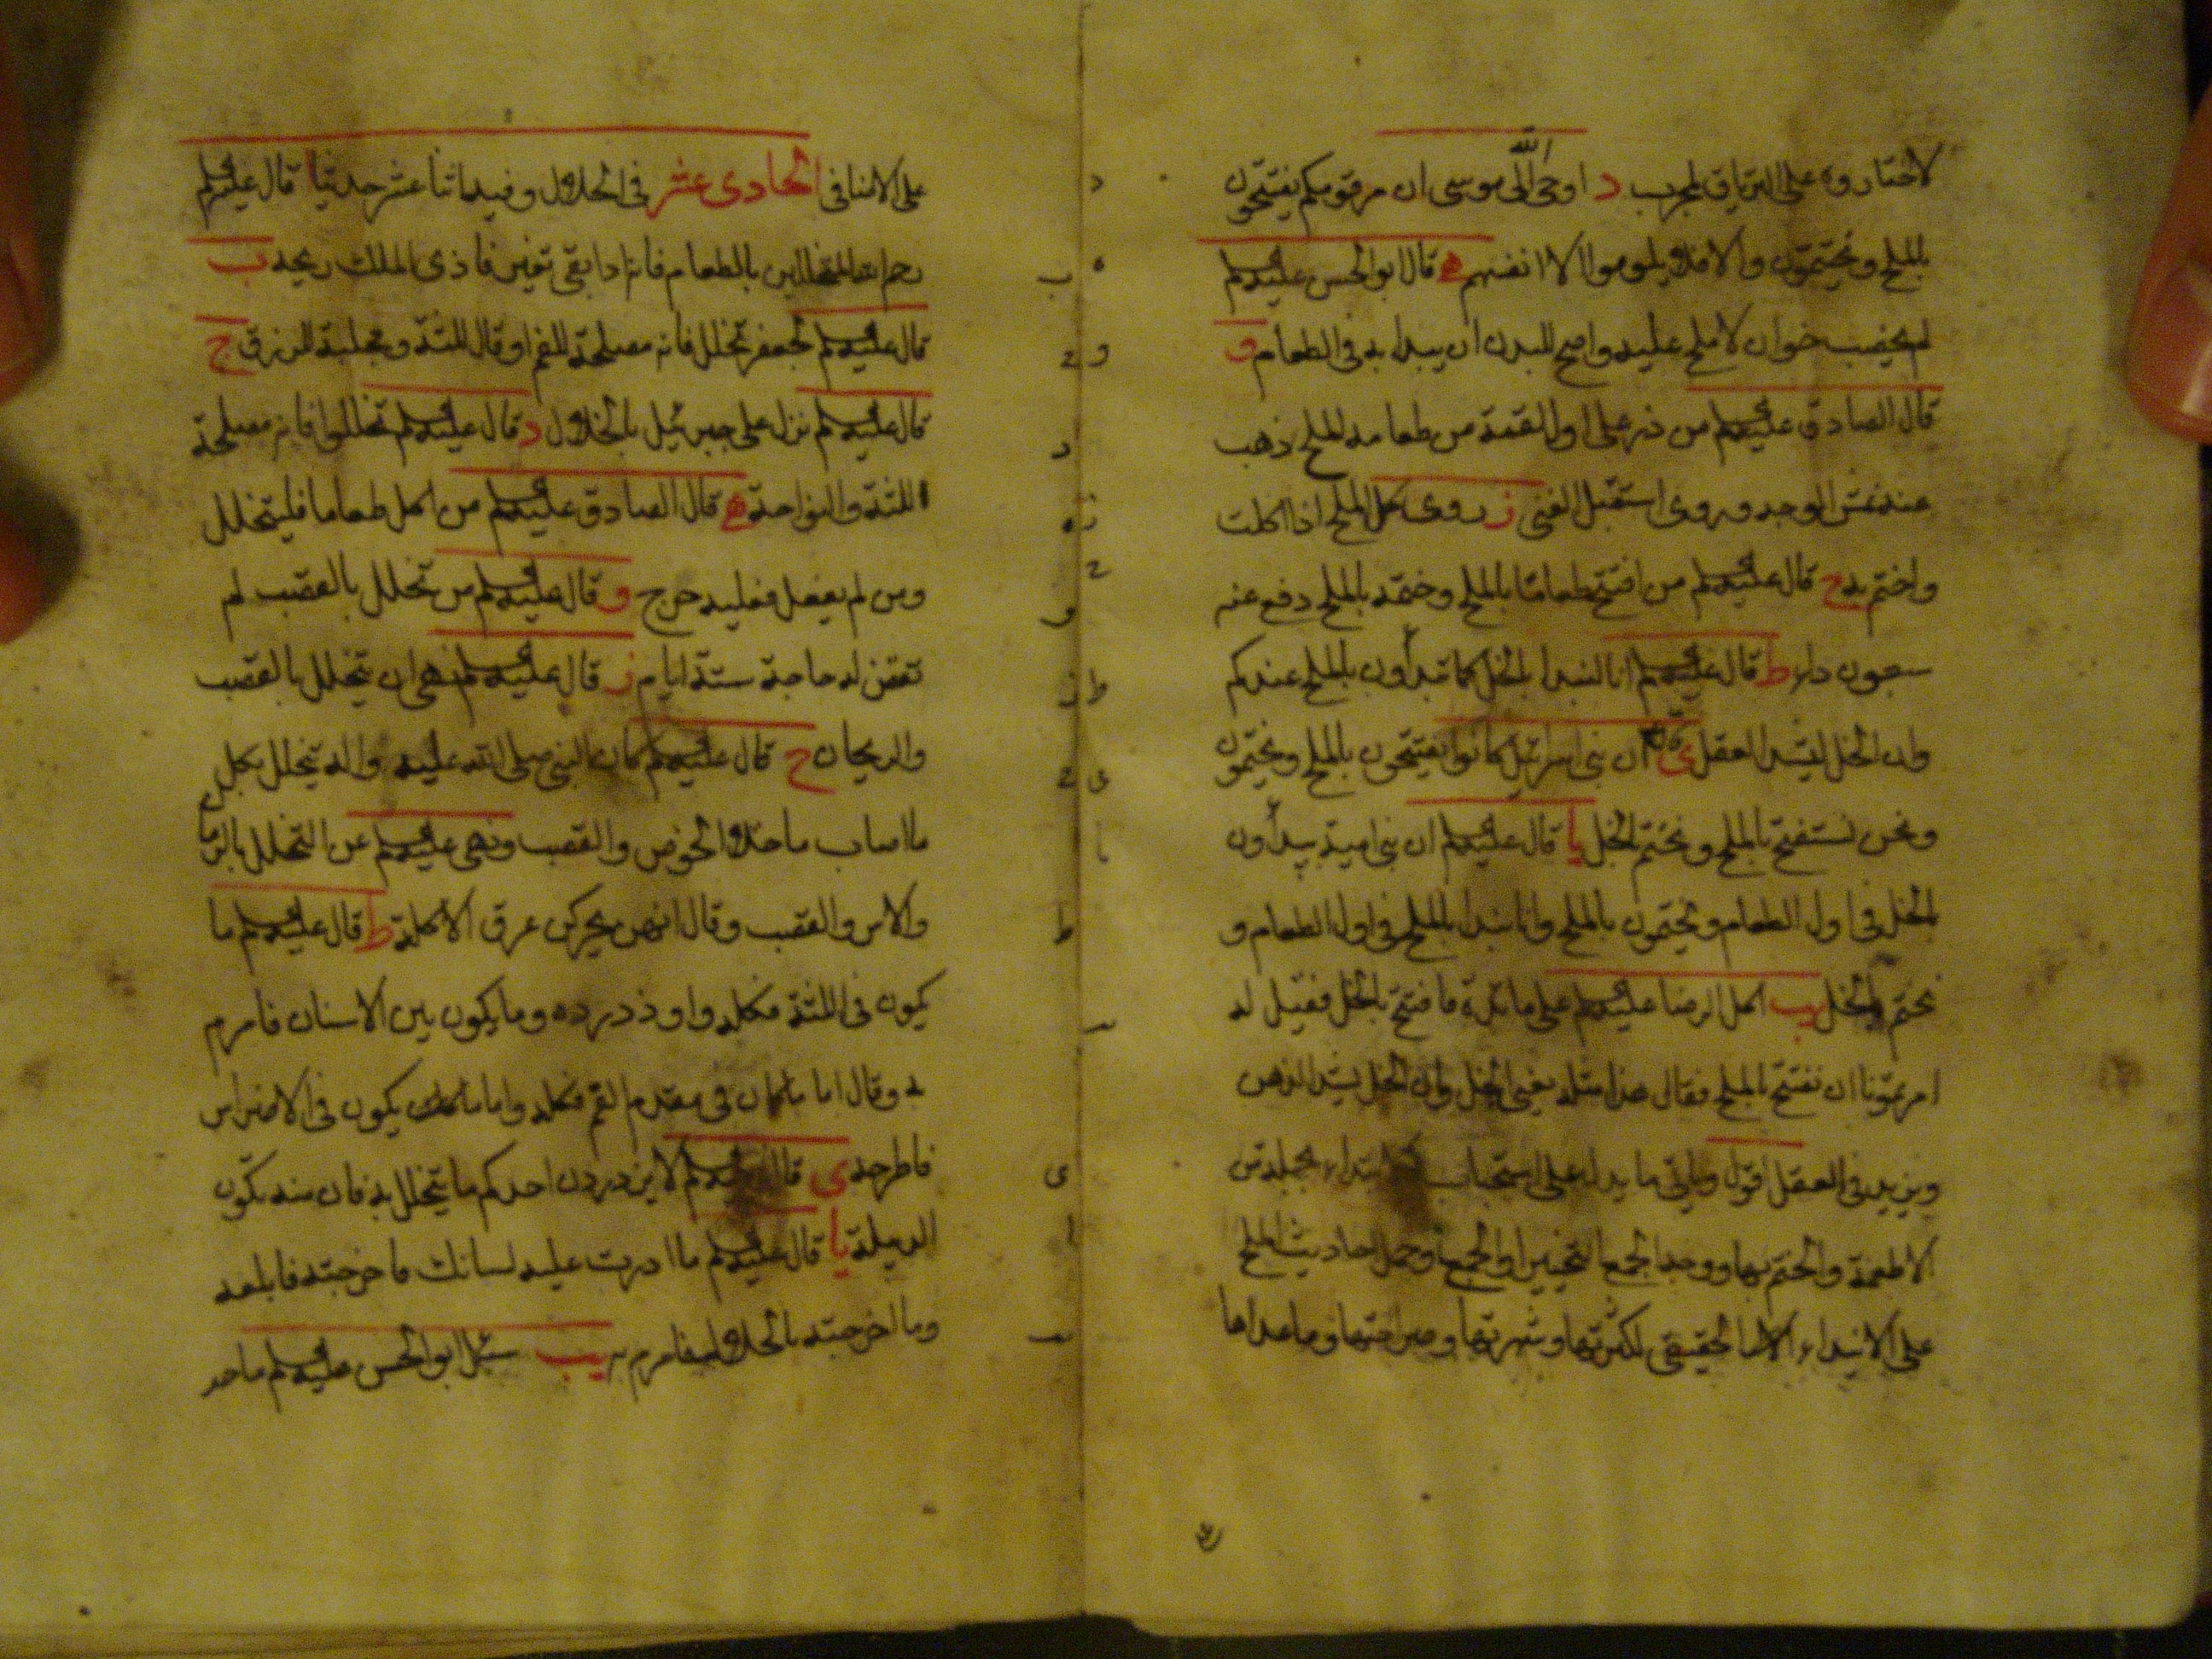 لاختاروه على الترياق المجرب د اوحى الله الى موسى ان مر قومكم يفتتحون
بالملح ويختتمون والا فلا يلوموا الا انفسهم ه قال ابو الحسن عليه السلام
لم يخصب خوان لا ملح عليه واصح للبدن ان يبدا به فى الطعام و
قال الصادق عليه السلام من ذر على اول لقمة من طعامه الملح ذهب
عنه نمش الوجه وروى استقبل الغنى ز روى كل الملح اذا اكلت
واختم به ح قال عليه السلام من افتتح طعاما بالملح وختمه بالملح دفع عنه
سبعون داء ط قال عليه السلام انا لنبدا بالخل كما تبدأون بالملح عندكم
وان الخل ليشد العقل ى قال ان بنى اسرائيل كانوا يفتتحون بالملح ويختمون
ونحن نستفتح بالملح ونختم بالخل يا قال عليه السلام ان بنى امية يبدأون
بالخل فى اول الطعام ويختمون بالملح وانا نبدا بالملح فى اول الطعام و
نختم بالخل يب اكل الرضا عليه السلام على مائدة فافتتح بالخل فقيل له
امرتمونا ان نفتتح بالملح فقال هذا مثله يعنى الخل وان الخل يشد الذهن
ويزيد فى العقل اقول وياتى ما يدل على استحباب الابتداء بجملة من
الاطعمة والختم بها ووجه الجمع التخيير او الجمع وحمل احاديث الملح
على الابتداء الحقيقى لكثرتها وشهرتها وصراحتها وما عداها
على الاضافى الحادى عشر فى الخلال وفيه اثنا عشر حديثا ا قال عليه السلام
رحم الله المتخللين بالطعام فانه اذا بقى تغير فاذى الملك ريحه ب
قال عليه السلام لجعفر تخلل فانه مصلحة للفم او قال للثة ومجلبة للرزق ج
قال عليه السلام نزل على جبرئيل بالخلال د قال عليه السلام تخللوا فانه مصلحة
للثة والنواجذ ه قال الصادق عليه السلام من اكل طعاما فليتخلل
ومن لم يفعل فعليه حرج و قال عليه السلام من تخلل بالقصب لم
تقض له حاجة ستة ايام ز قال عليه السلام نهى ان يتخلل بالقصب
والريحان ح قال عليه السلام كان النبى صلى الله عليه واله يتخلل بكل
ما اصاب ما خلا الخوص والقصب ونهى عليه السلام عن التخلل بالرمان
والاس والقصب وقال انهن يحركن عرق الاكلة ط قال عليه السلام ما
يكون فى اللثة فكله وازدرده وما يكون بين الاسنان فارم
به وقال اما ما كان فى مقدم الفم فكله واما ما يكون فى الاضراس
فاطرحه ى قال عليه السلام لا يزدردن احدكم ما يتخلل به فان منه تكون
الدبيلة يا قال عليه السلام ما ادرت عليه لسانك فاخرجته فابلعه
وما اخرجته بالخلال فارم به يب سئل ابو الحسن عليه السلام ما حد